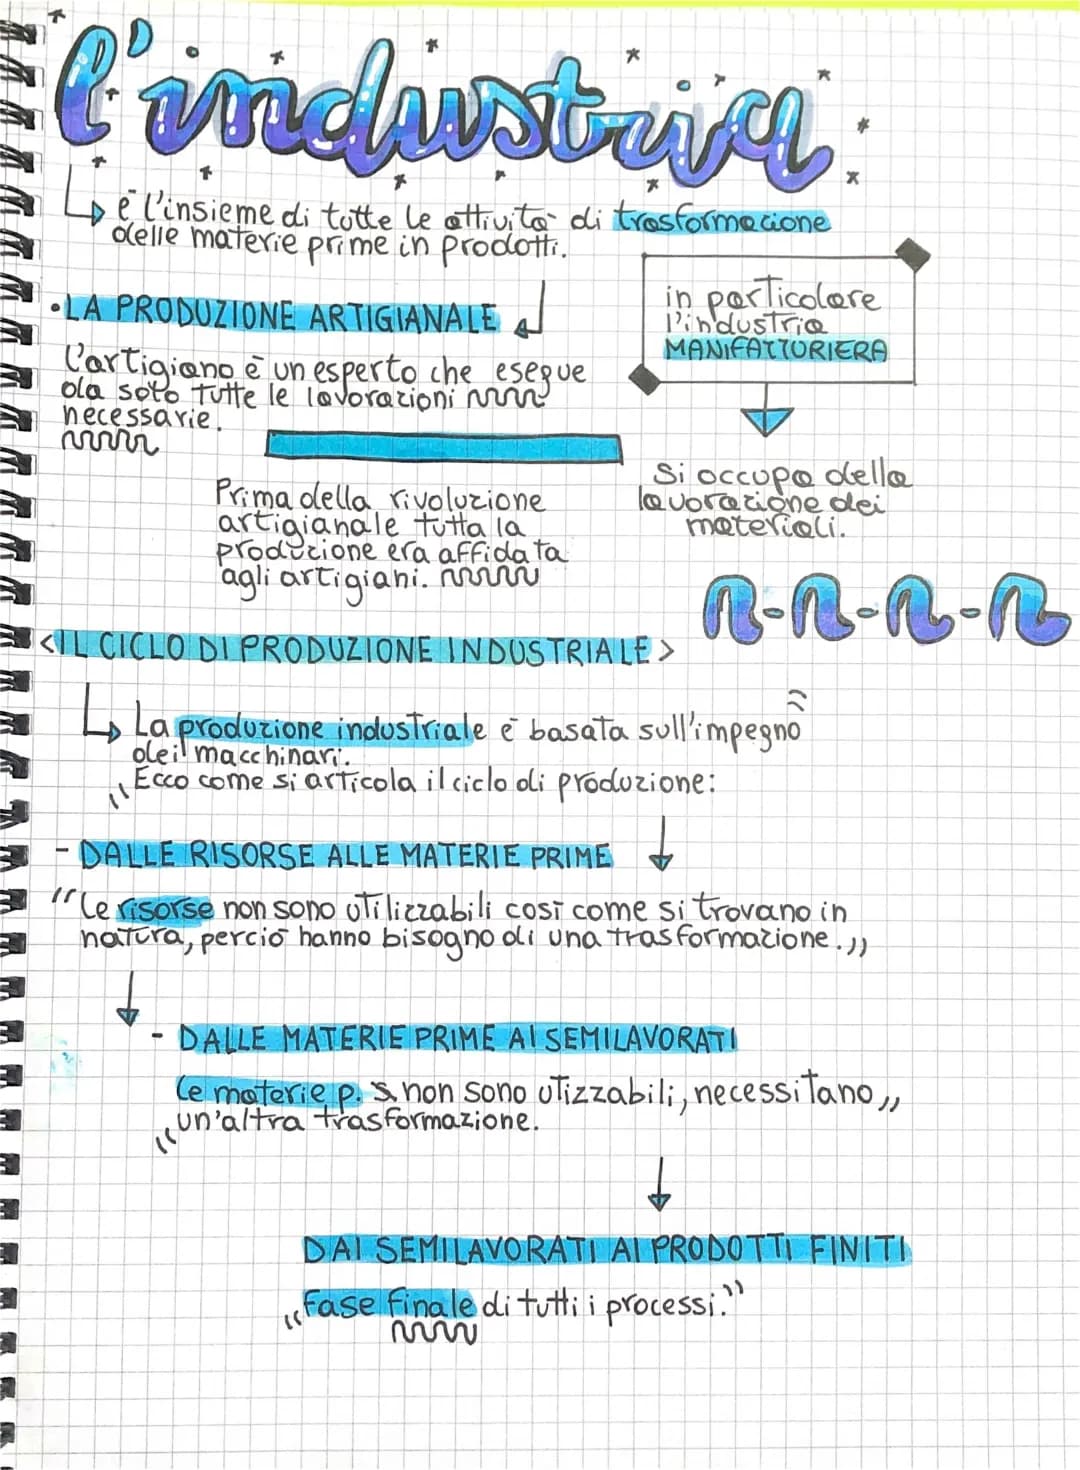 l'industria
è l'insieme di tutte le attività di trasformazione
delle materie prime in prodotti.
in particolare
l'industria
MANIFATTURIERA
Si occupa della
lavorazione dei
materiali.
•LA PRODUZIONE ARTIGIANALE
L'artigiano è un esperto che esegue
da solo tutte le lavorazioni
necessarie.
Prima della rivoluzione
artigianale tutta la
produzione era affidata
agli artigiani.
<IL CICLO DI PRODUZIONE INDUSTRIALE>
La produzione industriale è basata sull'impegno
dei macchinari.
Ecco come si articola il ciclo di produzione:
- DALLE RISORSE ALLE MATERIE PRIME
"Le risorse non sono utilizzabili così come si trovano in
natura, perciò hanno bisogno di una trasformazione.,,
- DALLE MATERIE PRIME AI SEMILAVORATI
Le materie p. non sono utizzabili, necessitano,,
"un'altra trasformazione.
DAI SEMILAVORATI AI PRODOTTI FINITI
"Fase finale di tutti i processi."